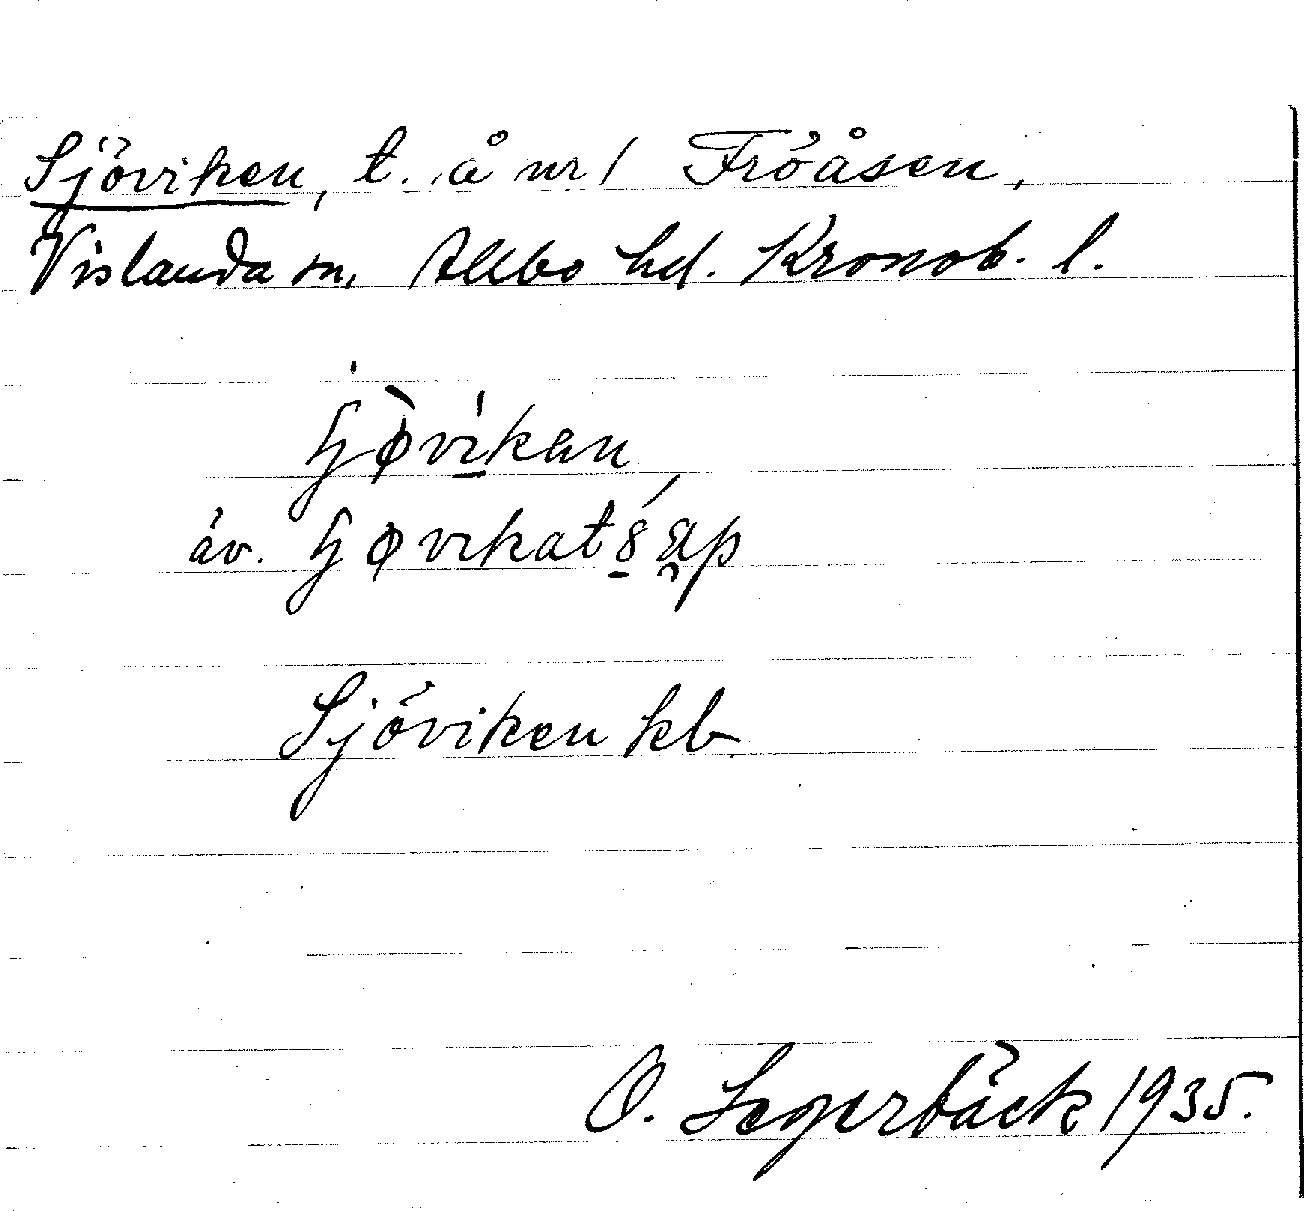 Sjöviken, t. å nr 1 Fröåsen,
Vislanda sn, Allbo hd. Kronob. l.
ɧø̀vi̱kan
äv. ɧøvikat
Sjöviken kb
O. Segerbäck 1935.